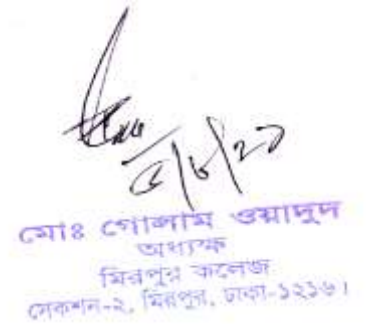 মোঃ গোলাম ওয়াদুদ
অধ্যক্ষ
মিরপুর কলেজ
সেকশন-২, মিরপুর, ঢাকা-১২১৬।